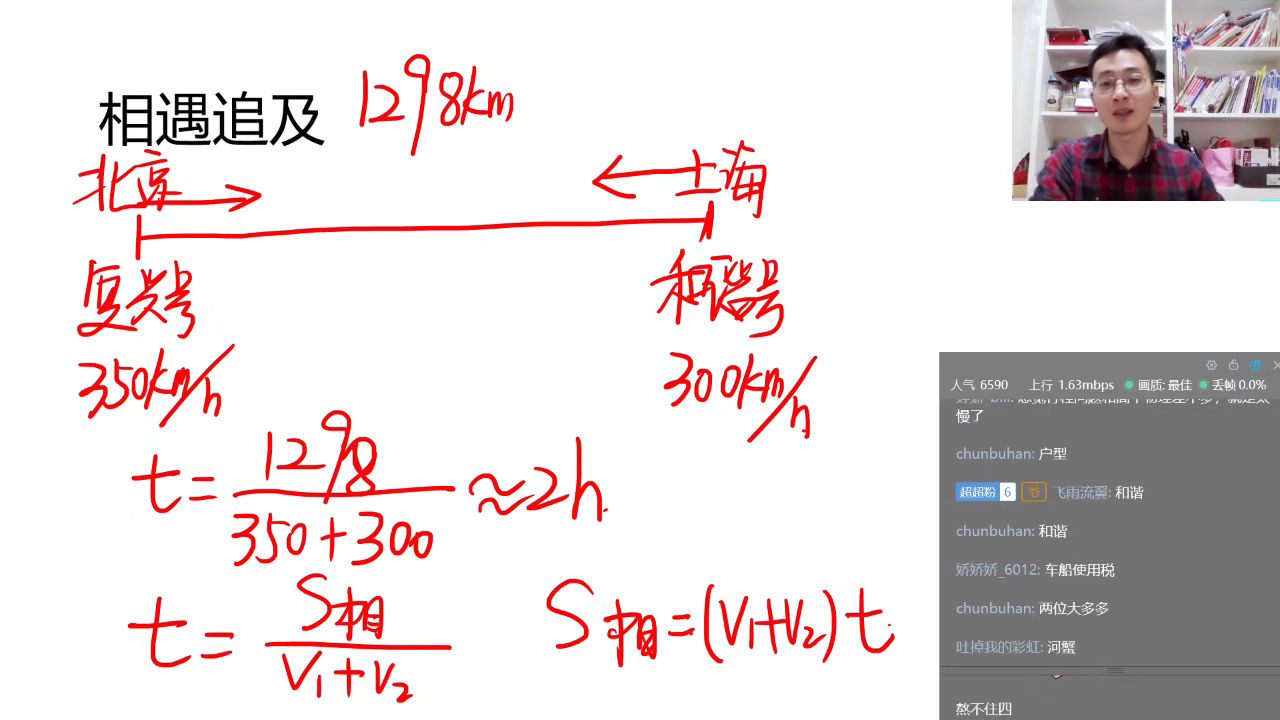 相遇追及 1298km
北京 上海
复兴号 和谐号
350km/h 300km/h
t=1298/350+300≈2h.
t=S相/V₁+V₂ S相=(V₁+V₂)t
人气 6590 上行 1.63mbps 画质: 最佳 丢帧 0.0%
慢了
chunbuhan: 户型
超超粉 6 飞雨流翼: 和谐
chunbuhan: 和谐
娇娇娇_6012: 车船使用税
chunbuhan: 两位大多多
吐掉我的彩虹: 河蟹
熬不住四